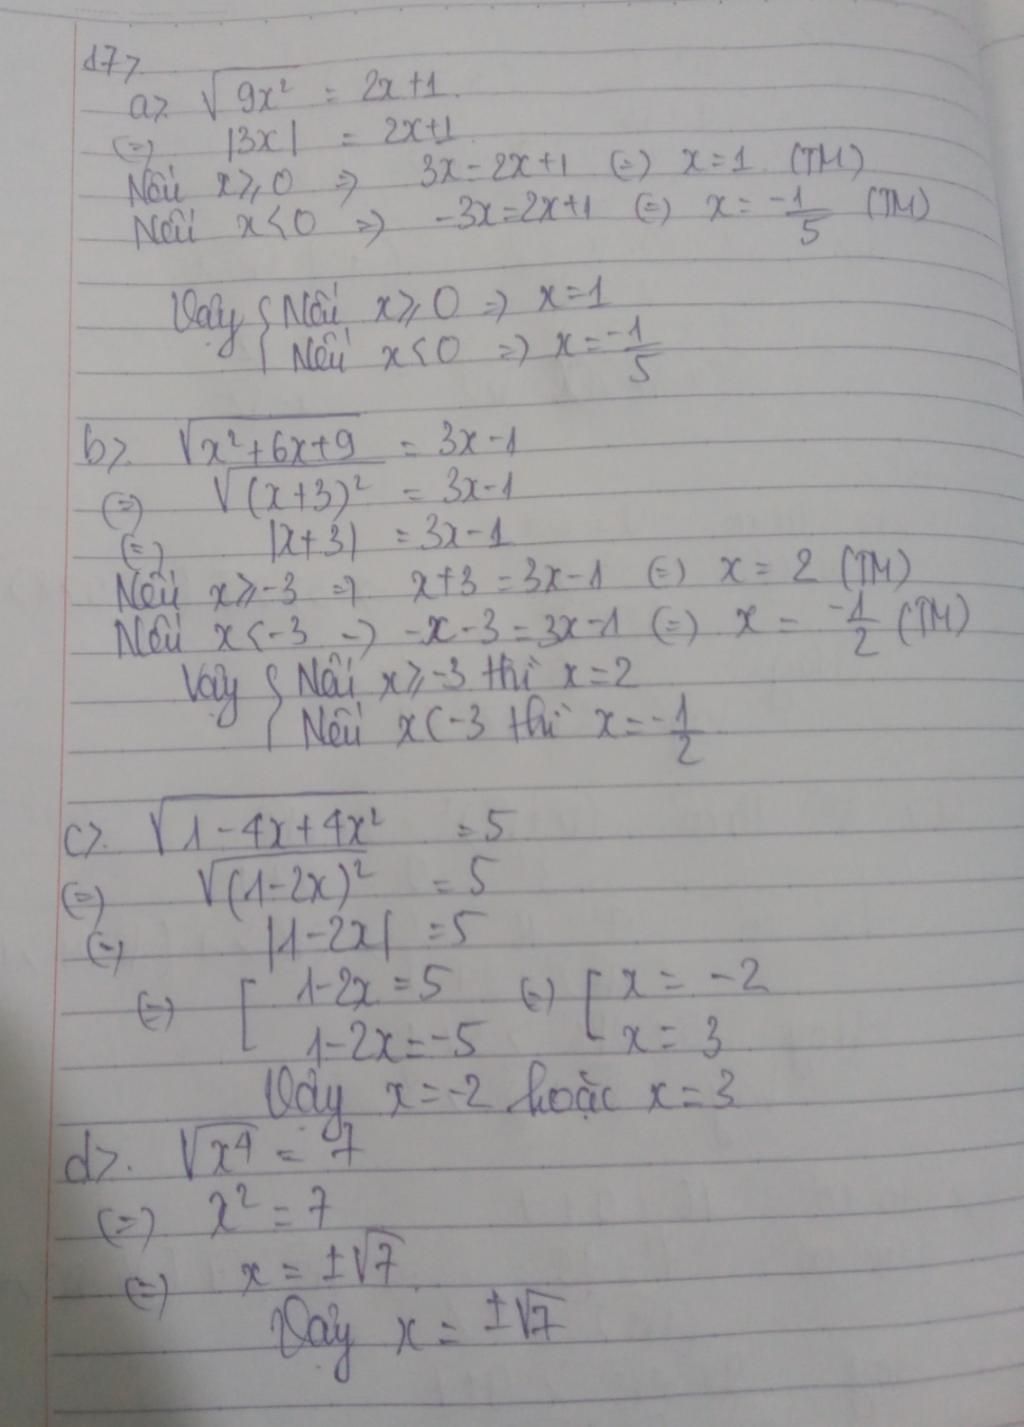 17>
a>. √9x² = 2x+1.
(=) |3x| = 2x+1
Nếu x ≥ 0 => 3x = 2x+1 (=) x = 1 (TM)
Nếu x < 0 => -3x = 2x+1 (=) x = -1/5 (TM)
Vậy { Nếu x ≥ 0 => x = 1
Nếu x < 0 => x = -1/5
b>. √x²+6x+9 = 3x-1
(=) √(x+3)² = 3x-1
(=) |x+3| = 3x-1
Nếu x ≥ -3 => x+3 = 3x-1 (=) x = 2 (TM)
Nếu x < -3 -) -x-3 = 3x-1 (=) x = -1/2 (TM)
Vậy { Nếu x ≥ -3 thì x = 2
Nếu x < -3 thì x = -1/2
c>. √1-4x+4x² = 5
(=) √(1-2x)² = 5
(=) |1-2x| = 5
(=) [ 1-2x = 5 (=) [ x = -2
1-2x = -5 x = 3
Vậy x = -2 hoặc x = 3
d>. √x⁴ = 7
(=) x² = 7
(=) x = ±√7
Vậy x = ±√7